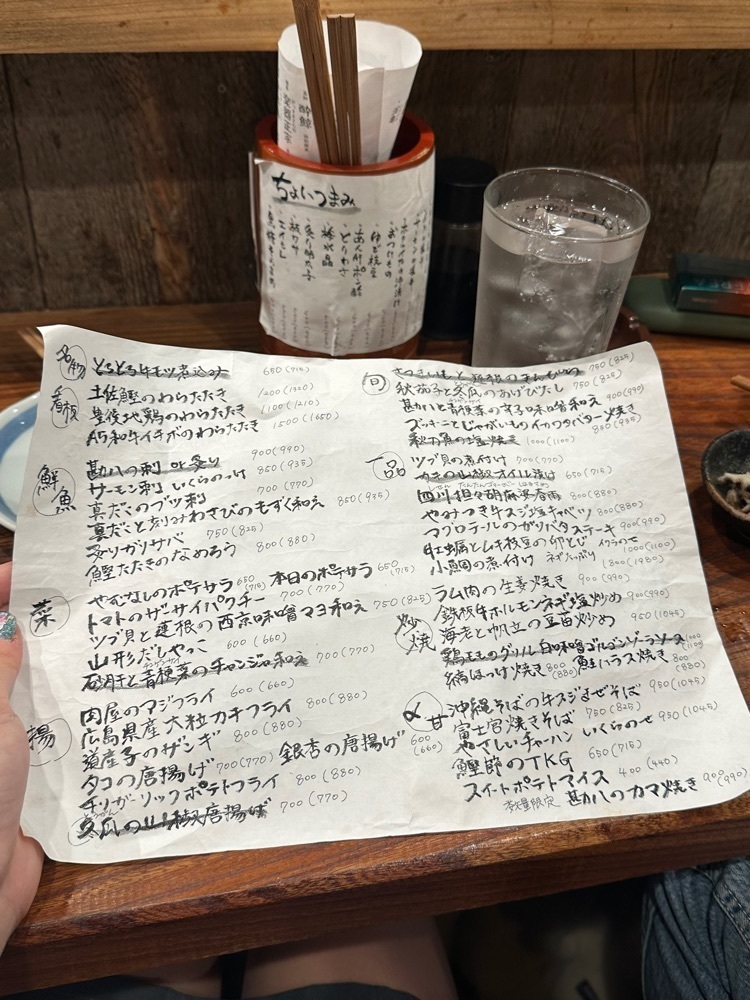 酔鯨
ちょいつまみ
とりわさ
名物 とろとろ牛モツ煮込み 650(715)
看板 土佐鰹のわらたたき 1200(1320)
豊後地鶏のわらたたき 1100(1210)
A5和牛イチボのわらたたき 1500(1650)
鮮魚 勘八の刺 or 炙り 900(990)
サーモン刺 いくらのっけ 850(935)
真だこのブツ刺 700(770)
真だこと刻みわさびのもずく和え 850(935)
炙りガリサバ 750(825)
鰹たたきのなめろう 800(880)
菜 やむなしのポテサラ 650(715) 本日のポテサラ 650(715)
トマトのザーサイパクチー 700(770)
ツブ貝と蓮根の西京味噌マヨ和え 750(825)
山形だしやっこ 600(660)
砂肝と青梗菜のチャンジャ和え 700(770)
揚 肉屋のマジフライ 600(660)
広島県産大粒カキフライ 800(880)
道産子のザンギ 800(880)
タコの唐揚げ 700(770) 銀杏の唐揚げ 600(660)
チリガーリックポテトフライ 800(880)
冬瓜の山椒唐揚げ 700(770)
旬 750(825)
秋茄子と冬瓜のあげびたし 750(825)
勘八と青梗菜の辛味噌和え 900(990)
ズッキーニとじゃがいものイカワタバター焼き 850(935)
秋刀魚の塩焼き 1000(1100)
一品 ツブ貝の煮付け 700(770)
カキの山椒オイル漬け 650(715)
四川担々胡麻浸春雨 800(880)
やみつき牛スジ塩キャベツ 800(880)
マグロテールのガリバタステーキ 900(990)
牡蠣とムキ枝豆の卵とじ イクラのせ 1000(1100)
小鯛の煮付け ネギたっぷり 1800(1980)
炒焼 ラム肉の生姜焼き 900(990)
鉄板牛ホルモンネギ塩炒め 900(990)
海老と帆立の豆苗炒め 950(1045)
鶏もものグリル白味噌ゴルゴンゾーラソース
縞ほっけ焼き 800(880) 鮭ハラス焼き 800(880)
〆甘 沖縄そばの牛スジまぜそば 950(1045)
富士宮焼きそば 750(825)
やさしいチャーハン いくらのせ 950(1045)
鰹節のTKG 650(715)
スイートポテトマイス 400(440)
数量限定 勘八のカマ焼き 900(990)